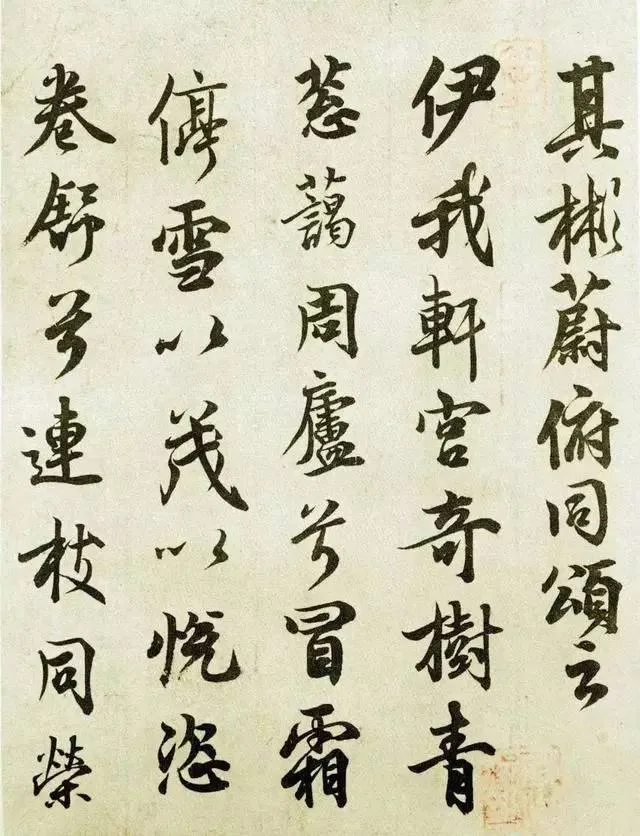 其彬蔚俯同頌云
伊我軒宮奇樹青
葱藹周廬兮冒霜
停雪以茂以悅恣
卷舒兮連枝同榮